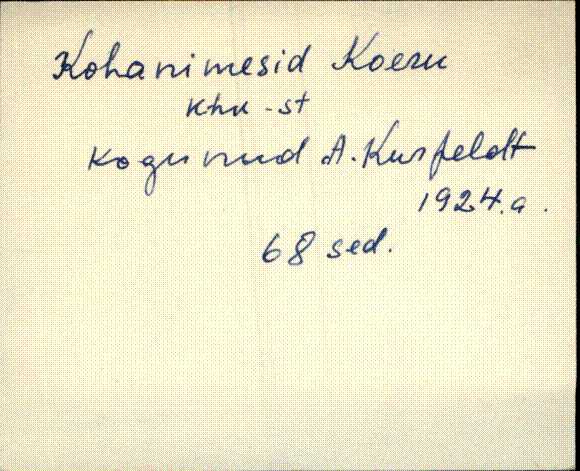 Kohanimesid Koeru
khk-st
kogunud A. Kurfeldt
1924.a.
68 sed.